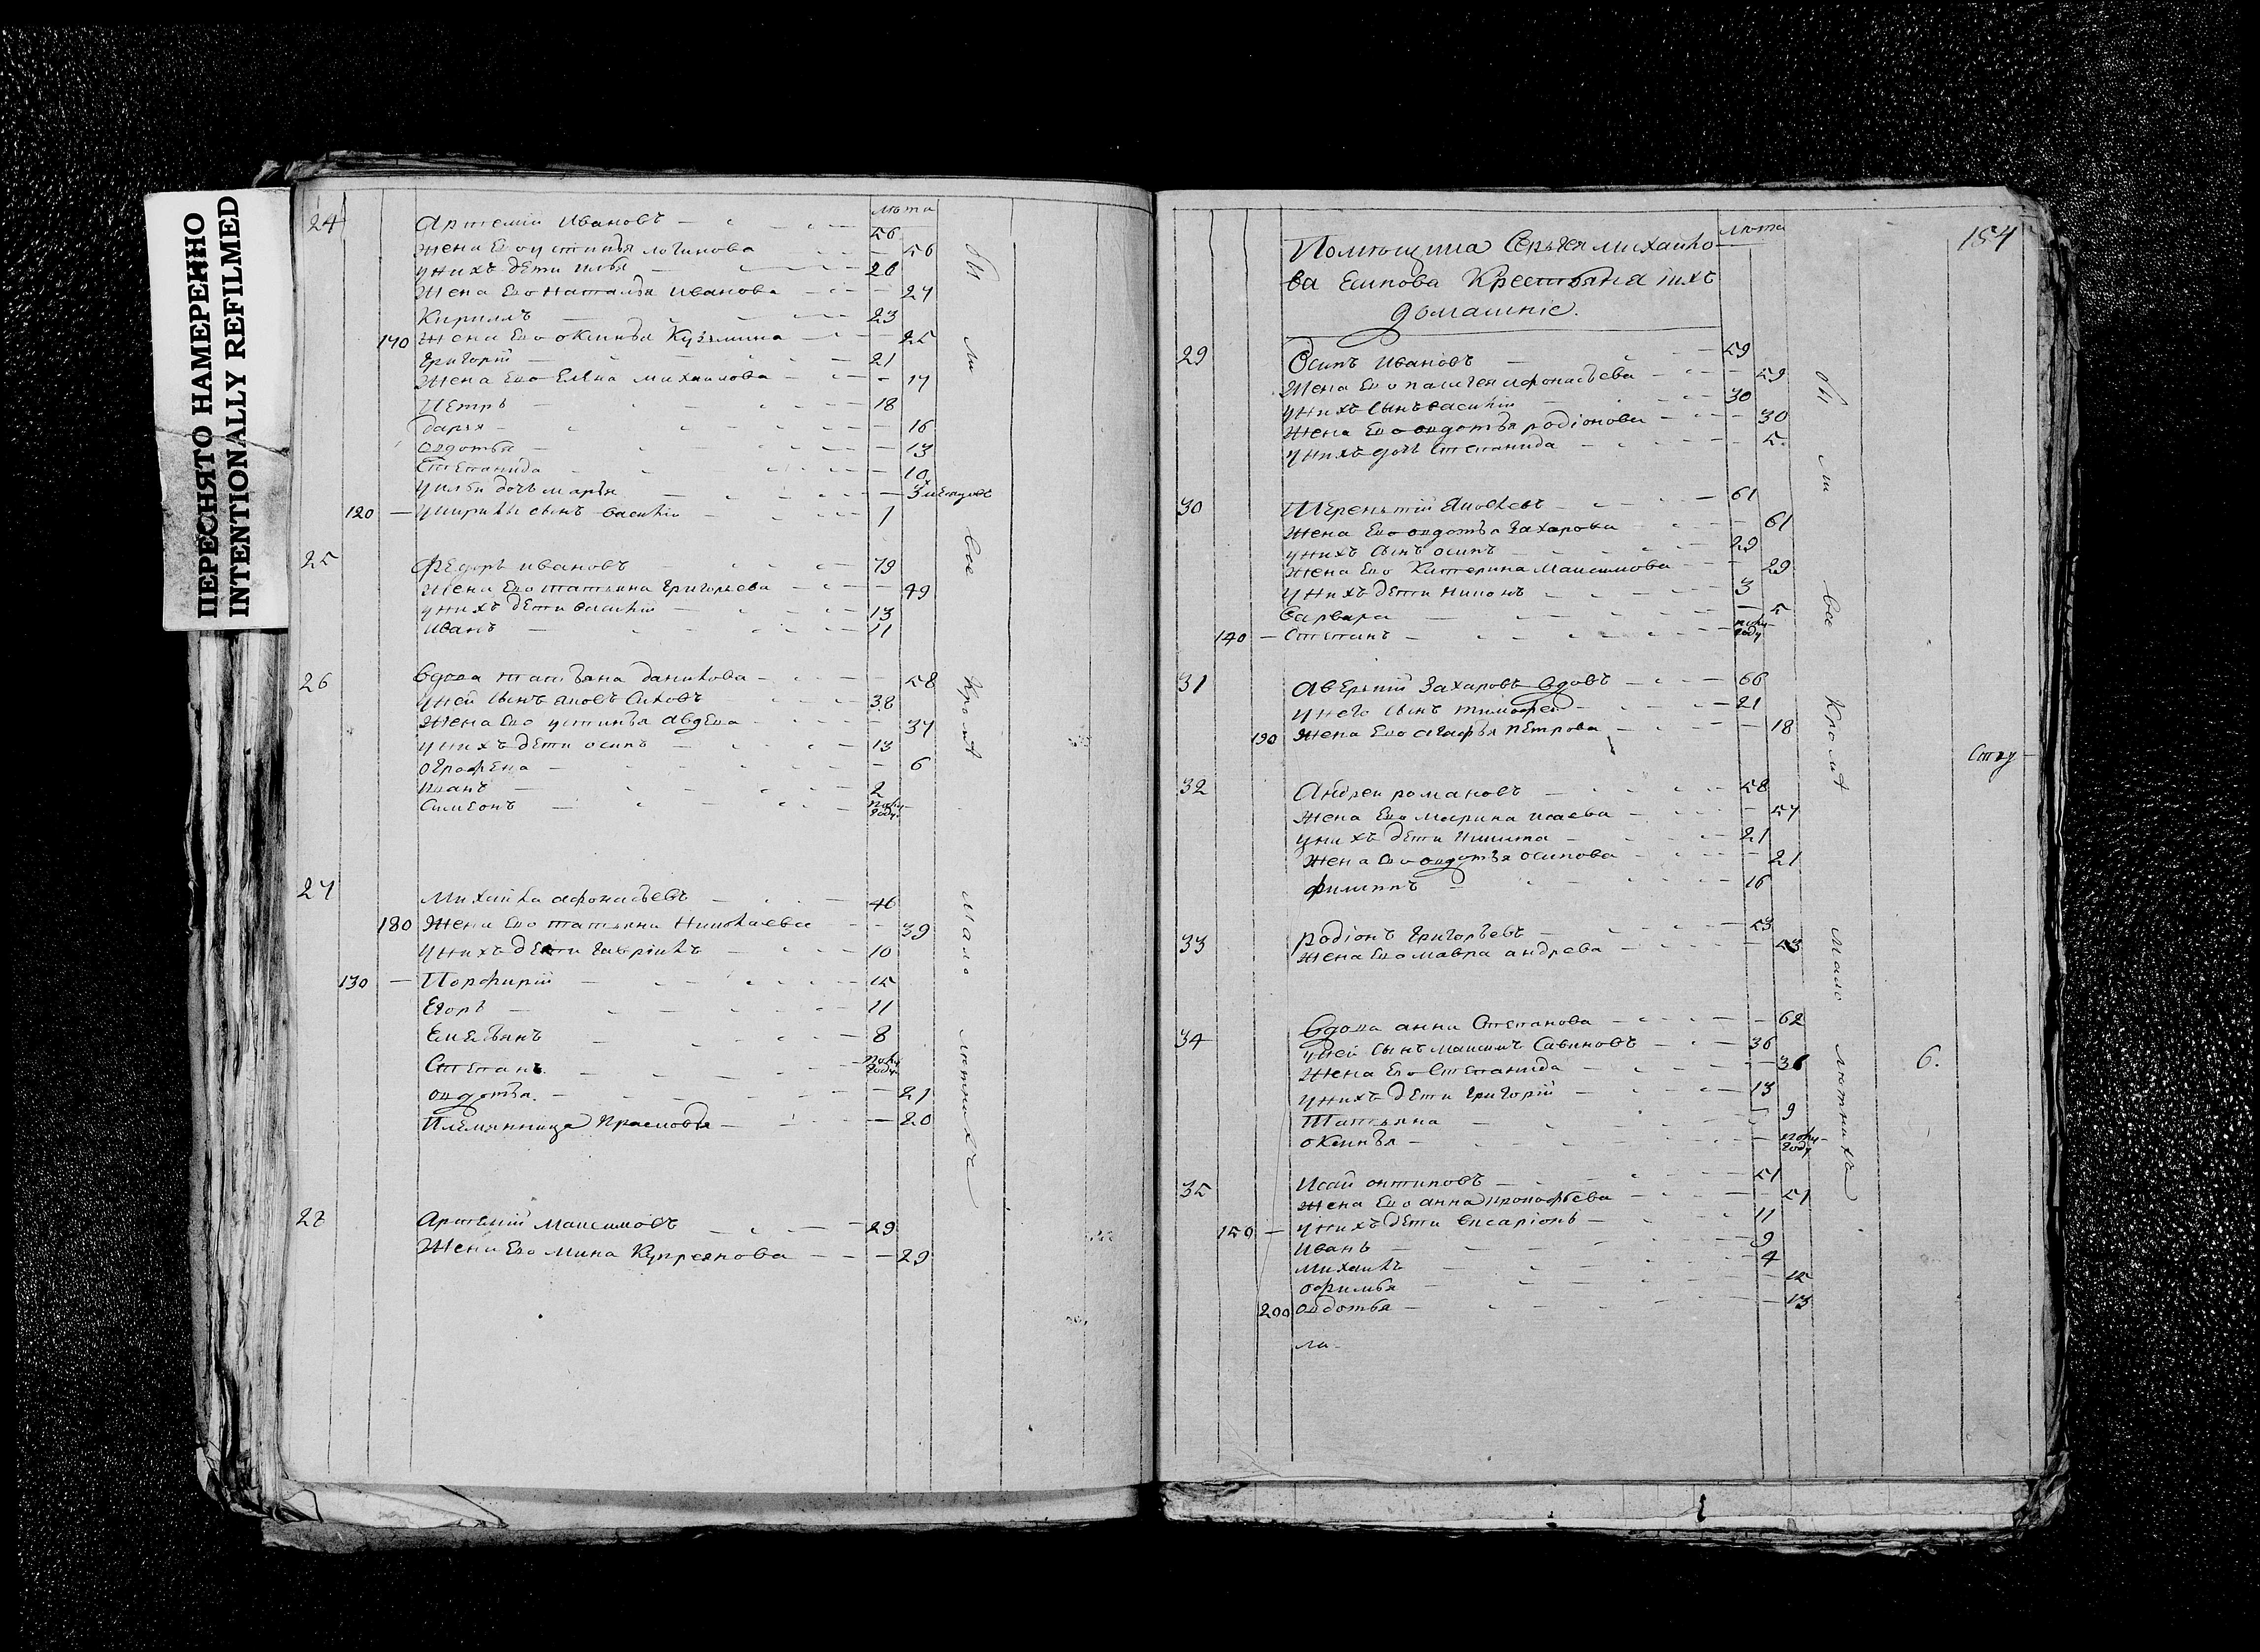 ПЕРЕСНЯТО НАМЕРЕННО
INTENTIONALLY REFILMED
лѣта
24 Артемiй Ивановъ 56
жена Ево устинья логинова 56
у нихъ дѣти илья 26
Жена Ево Наталья Иванова 27
Кирилъ 23
170 Жена Ево оксинья Кузьмина 25
Григорiй 21
Жена Ево Елена михаилова 17
Петръ 18
Дарья 16
овдотья 13
Степанида 10
у ильи дочь марья 3 месецовъ
120 у кирилы сынъ василiй 1
25 Федоръ ивановъ 79
Жена Ево татьяна Григорьева 49
у нихъ дѣти василiй 13
иванъ 11
26 вдова татьяна данилова 58
у ней сынъ яковъ 38
Жена Ево устинья авдеева 37
у нихъ дѣти осипъ 13
ографена 6
иванъ 2
Симеонъ полу году
27 Михайла афонасьевъ 46
180 Жена Ево татьяна Николаева 39
у нихъ дети гаврiилъ 10
130 Порфирiй 15
Егоръ 11
Емельянъ 8
Степанъ полу году
овдотья 21
Племянница Прасковья 20
28 Артемiй Максимовъ 29
Жена Ево Куприянова 29
были все Кромѣ мало лѣтнихъ
154
лѣта
Помещика Сергея михайло
ва Есипова Крестьяня ихъ
домашнiе.
29 Осипъ Ивановъ 59
Жена Ево пелагея афонасьева 59
у нихъ сынъ василiй 30
Жена Ево овдотья родiонова 30
у нихъ дочь степанида 5
30 Терентiй Яковлевъ 61
Жена Ево овдотья Захарова 61
у нихъ сынъ осипъ 29
Жена Ево Катерина Максимова 29
у нихъ дети никонъ 3
варвара 5
140 Степанъ полу году
31 Аверкiй Захаровъ вдовъ 66
у него сынъ тимофей 21
190 Жена Ево агафья петрова 18
32 Андреи романовъ 58
Жена Ево марина исаева 57
у нихъ дети никита 21
Жена Ево овдотья осипова 21
филиппъ 16
33 родiонъ Григорьевъ 53
Жена Ево мавра андреева 53
34 вдова анна Степанова 62
у ней сынъ максимъ Савиновъ 36
Жена Ево Степанида 36
у нихъ дети Григорiй 13
Татьяна 9
оксинья полу году
35 Исай онтиповъ 51
Жена Ево анна прокофьева 51
150 у нихъ дети висарiонъ 11
Иванъ 9
михаилъ 4
офимья 15
200 овдотья 13
были все Кромѣ мало лѣтнихъ
6.